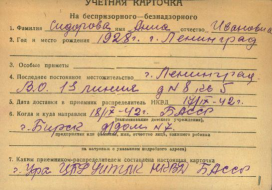 УЧЕТНАЯ КАРТОЧКА
На беспризорного—безнадзорного
1. Фамилия Сидорова имя Анна отчество Ивановна
2. Год и место рождения 1928 г. г. Ленинград
3. Особые приметы
4. Последнее постоянное местожительство г. Ленинград
В.О. 13 линия д 8 кв 5
5. Дата доставки в приемник-распределитель НКВД 17/IX-42г.
6. Когда и куда направлен 18/IX-42г. БАССР
г. Бирск д/дом №7.
7. Каким приемником-распределителем составлена настоящая карточка
г. Уфа НКВД БАССР